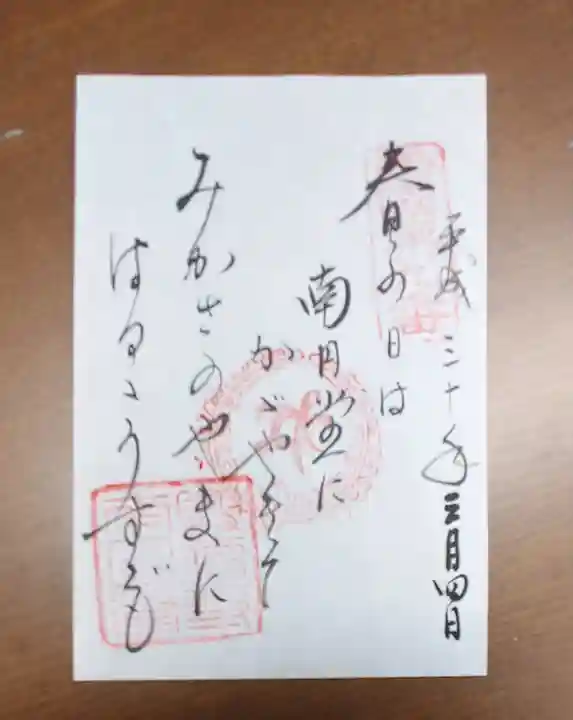 平成三十年三月四日
春の日は
南円堂に
かゞやきて
みかさのやまに
はるゝうすぐも